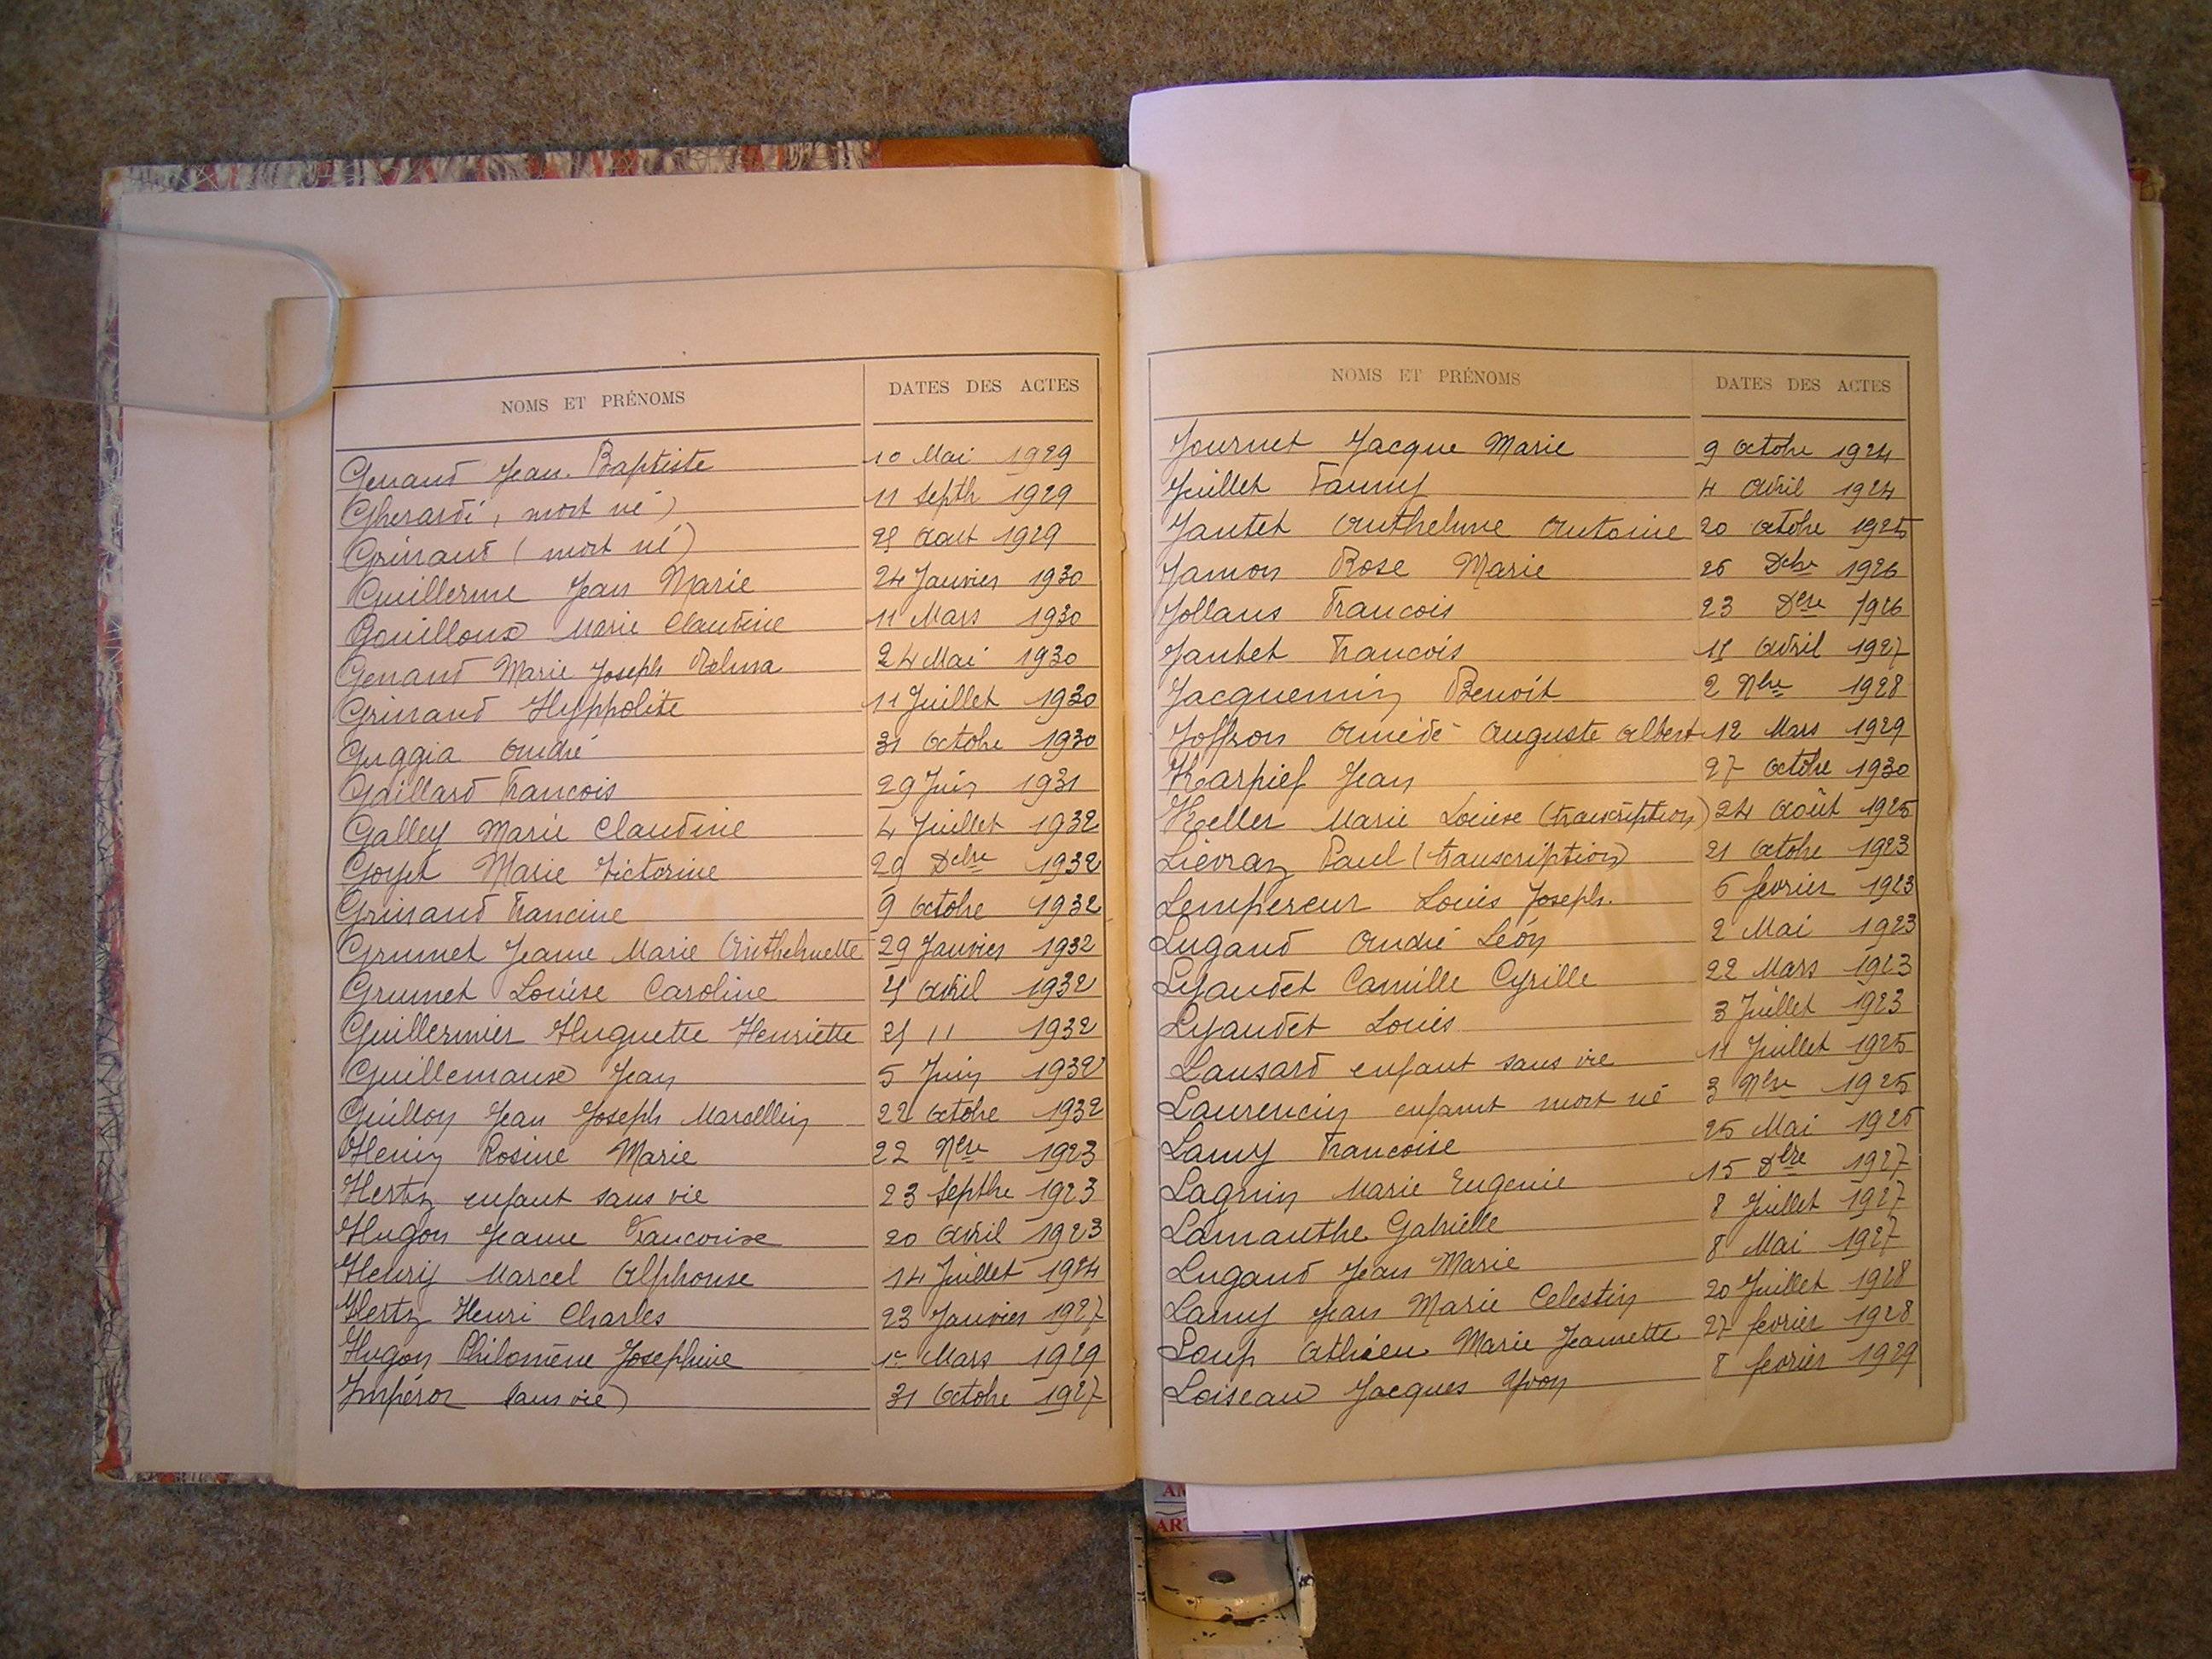 NOMS ET PRÉNOMS DATES DES ACTES
Genaud Jean-Baptiste 10 Mai 1929
Gherardi, mort né) 11 Septh 1929
Grinand (mort né) 29 Aout 1929
Guillerme Jean Marie 24 Janvier 1930
Gouilloux Marie Claudine 11 Mars 1930
Genaud Marie Joseph 24 Mai 1930
Grinand Hyppolite 11 Juillet 1930
Guggia André 31 Octobre 1930
Gaillard Francois 29 Juin 1931
Galley Marie Claudine 4 Juillet 1932
Goyet Marie Victorine 29 Dcbre 1932
Grinand Francine 9 Octobre 1932
Grumet Jeanne Marie Anthelmette 29 Janvier 1932
Grumet Louise Caroline Avril 1932
Guillermier Huguette Henriette 11 1932
Guillemaux Jean 5 Juin 1932
Guillon Jean Joseph Marcellin 22 Octobre 1932
Henin Rosine Marie 22 Nbre 1923
Hertz enfant sans vie 23 Septbre 1923
Hugon Jeanne Francoise 20 Avril 1923
Henry Marcel Alphonse 14 Juillet 1924
Hertz Henri Charles 23 Janvier 1927
Hugon Philomène Josephine 1er Mars 1929
Impéror sans vie) 31 Octobre 1927
NOMS ET PRÉNOMS DATES DES ACTES
Journet Jacque Marie 9 Octobre 1924
Juillet Fanny 4 Avril 1924
Jantet Anthelme Antoine 20 Octobre 1925
Jamon Rose Marie 26 Dcbre 1926
Jollans Francois 23 Dbre 1926
Jantet Francois Avril 1927
Jacquemin Benoit 2 Nbre 1928
Joffron Amédé Auguste Albert 12 Mars 1929
Karpief Jean 27 Octobre 1930
Keller Marie Louise (transcription) 24 Août 1925
Liévran Paul (transcription) 21 Octobre 1923
Lempereur Louis Joseph. 6 fevrier 1923
Lugand André Léon 2 Mai 1923
Lyaudet Camille Cyrille 22 Mars 1923
Lyaudet Louis 3 Juillet 1923
Lansard enfant sans vie 11 Juillet 1925
Laurencin enfant mort né 3 Nbre 1925
Lamy Francoise 25 Mai 1925
Lagnin Marie Eugenie 15 Dbre 1927
Lamanthe Gabrielle 8 Juillet 1927
Lugand Jean Marie 8 Mai 1927
Lamy Jean Marie Celestin 20 Juillet 1928
Loup Marie Jeannette 27 fevrier 1928
Loiseau Jacques Yvon 8 fevrier 1929